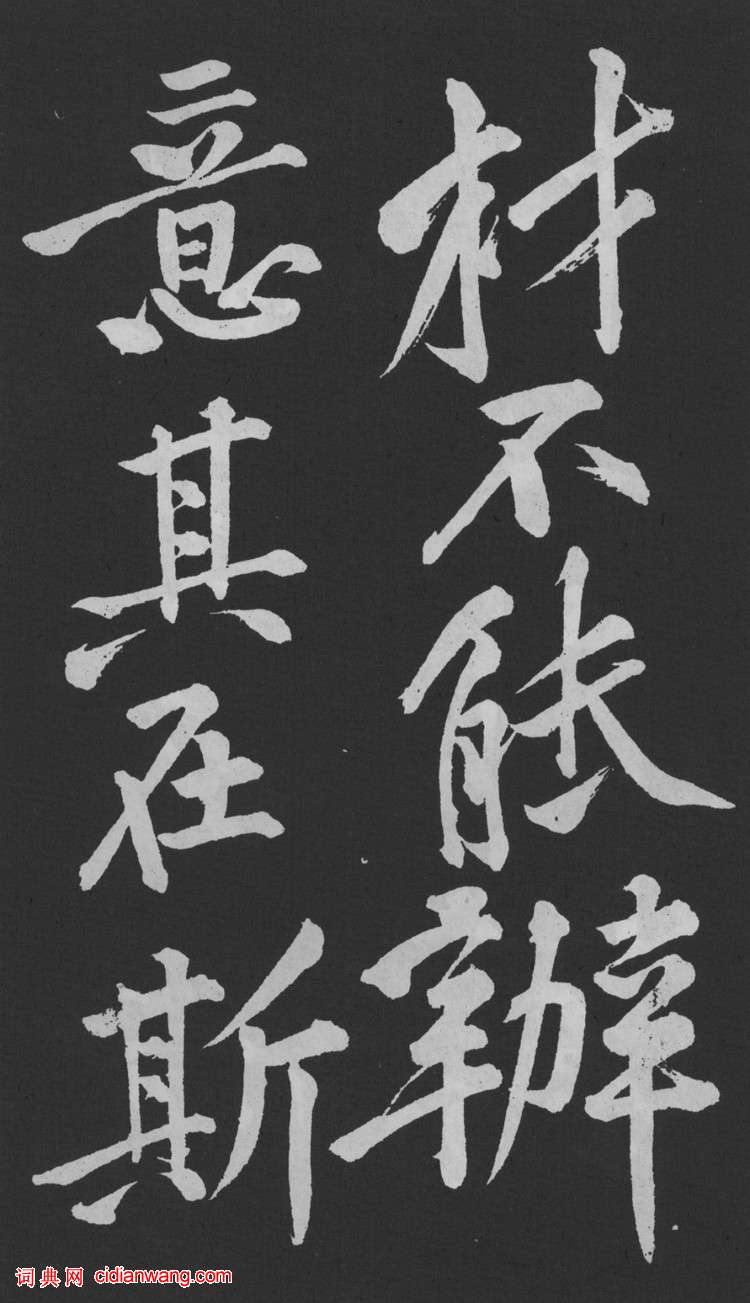 材不能辦
意其在斯
词典网 cidianwang.com